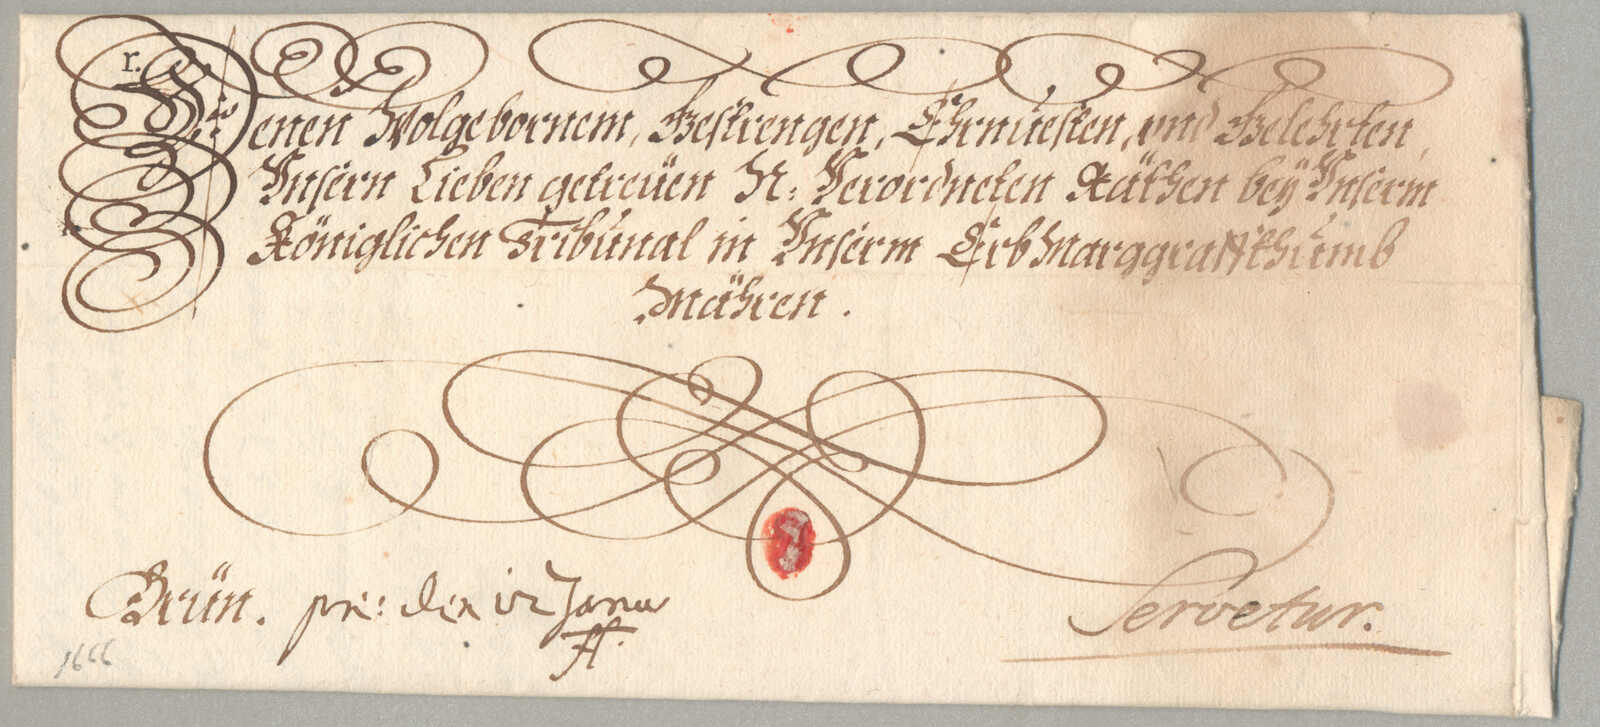 r.
Denen Wolgebornem, Gestrengen, Ehrnuesten, vnd Gelehrten,
Vnsern Lieben getreüen N: Verordneten Räthen beÿ Vnserm
Königlichen Tribunal in Vnserm Erb Marggraffthumb
Mähren.
Brün. pre: den 12 Janu
Servetur.
1666